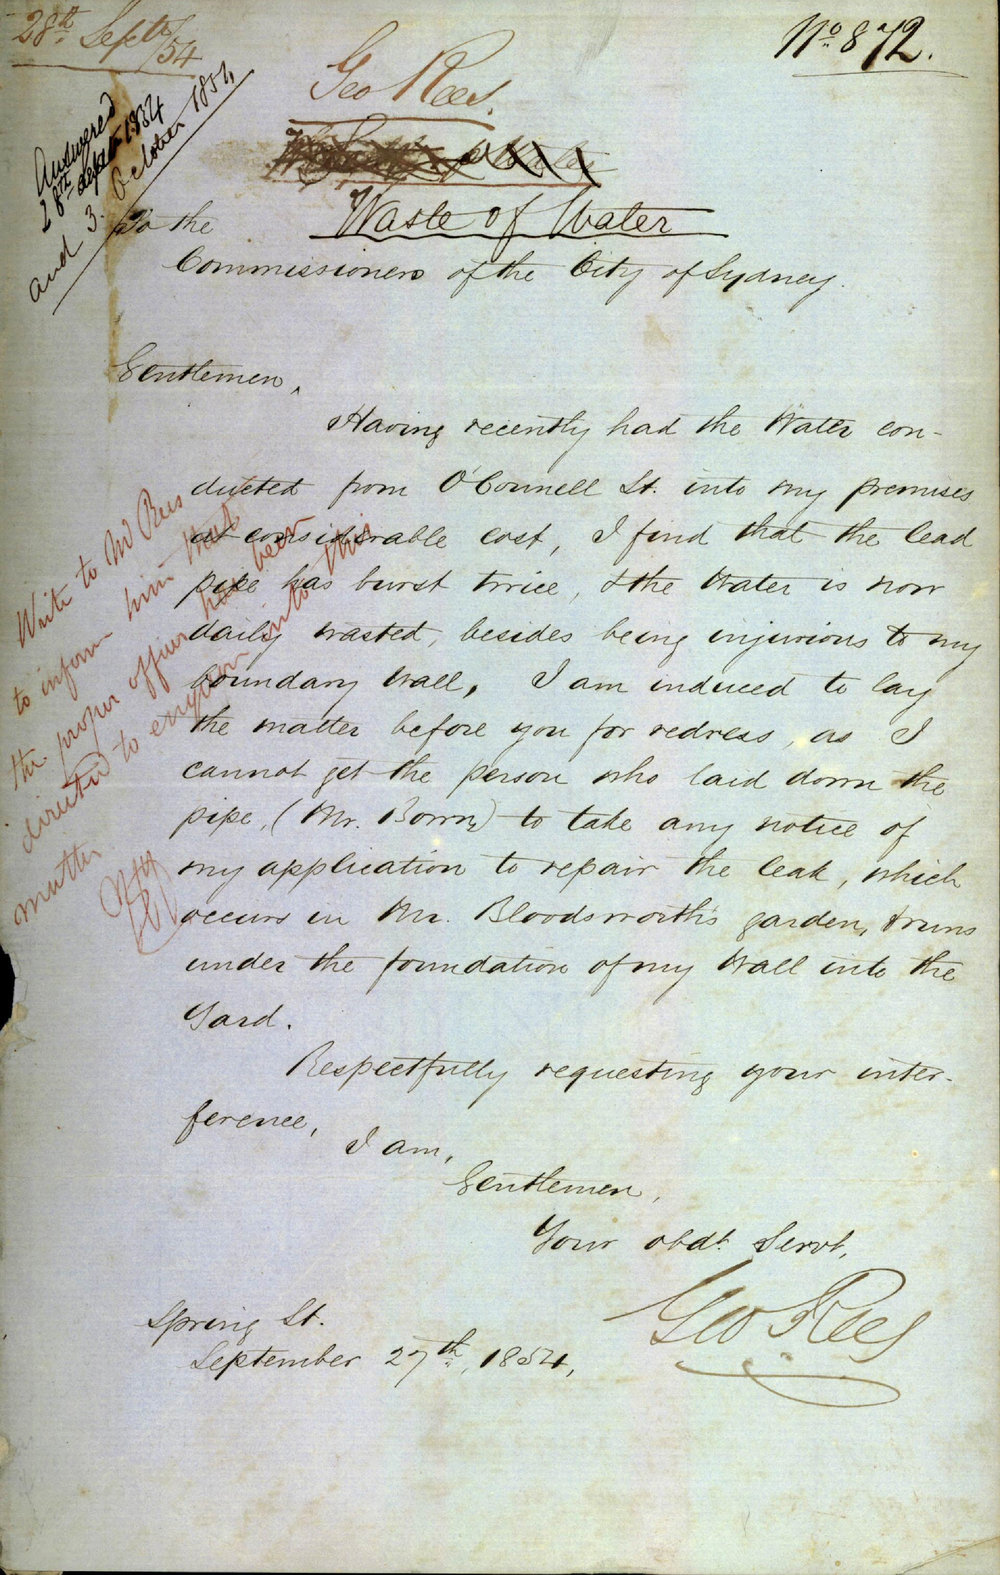 28th Septr/54
No 872.
Geo Rees.
Answered
28th Sept 1854
and 3. October 1854
Waste of Water
To the
Commissioners of the City of Sydney.
Gentlemen,
Having recently had the Water con-
ducted from O'Connell St. into my premises
at considerable cost, I find that the lead
pipe has burst twice, & the Water is now
daily wasted, besides being injurious to my
boundary Wall. I am induced to lay
the matter before you for redress, as I
cannot get the person who laid down the
pipe, (Mr. Born,) to take any notice of
my application to repair the leak, which
occurs in Mr. Bloodsworth's garden, & runs
under the foundation of my Wall into the
Yard.
Respectfully requesting your inter-
ference,
I am,
Gentlemen,
Your obdt. Servt,
Geo Rees
Spring St.
September 27th, 1854,
Write to Mr Rees
to inform him that
the proper officer has been
directed to enquire into this
matter